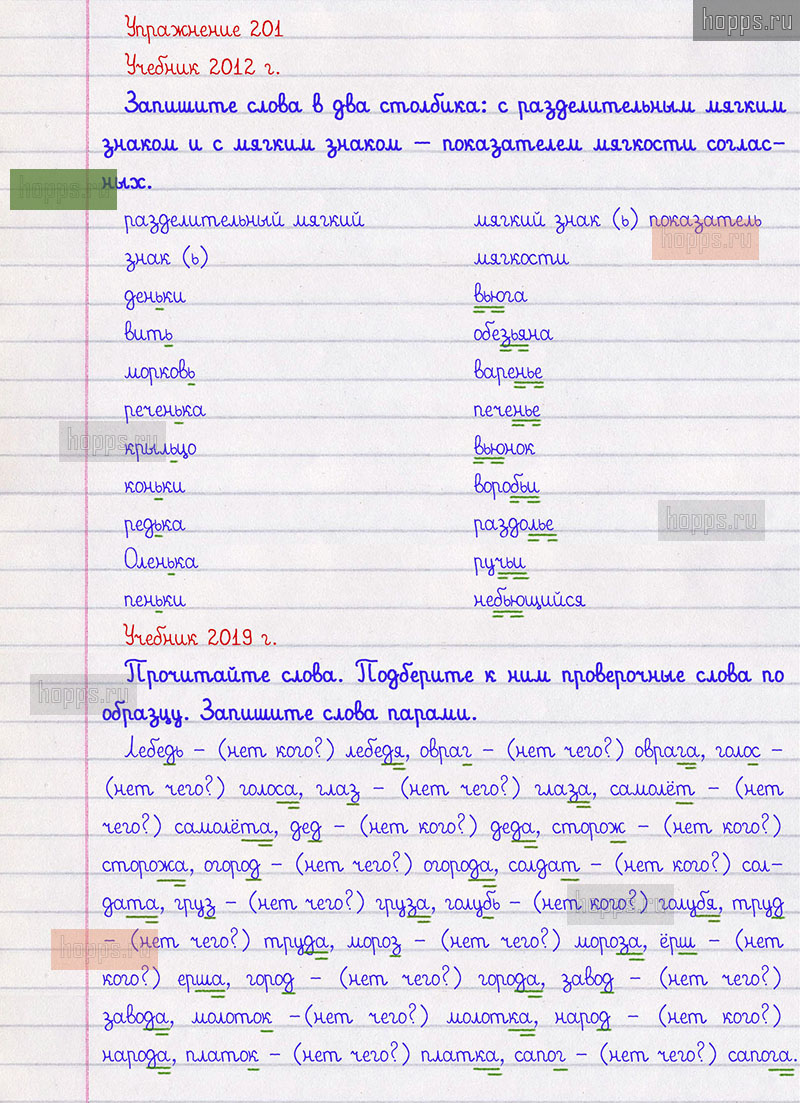 hopps.ru
Упражнение 201
Учебник 2012 г.
Запишите слова в два столбика: с разделительным мягким
знаком и с мягким знаком — показателем мягкости соглас-
ных.
hopps.ru
разделительный мягкий мягкий знак (ь) показатель
hopps.ru
знак (ь) мягкости
деньки вьюга
вить обезьяна
морковь варенье
реченька печенье
hopps.ru
крыльцо вьюнок
коньки воробьи
hopps.ru
редька раздолье
Оленька ручьи
пеньки небьющийся
Учебник 2019 г.
Прочитайте слова. Подберите к ним проверочные слова по
hopps.ru
образцу. Запишите слова парами.
Лебедь – (нет кого?) лебедя, овраг – (нет чего?) оврага, голос –
(нет чего?) голоса, глаз – (нет чего?) глаза, самолёт – (нет
чего?) самолёта, дед – (нет кого?) деда, сторож – (нет кого?)
сторожа, огород – (нет чего?) огорода, солдат – (нет кого?) сол-
дата, груз – (нет чего?) груза, голубь – (нет кого?) голубя, труд
hopps.ru
– (нет чего?) труда, мороз – (нет чего?) мороза, ёрш – (нет
hopps.ru
кого?) ерша, город – (нет чего?) города, завод – (нет чего?)
завода, молоток –(нет чего?) молотка, народ – (нет кого?)
народа, платок – (нет чего?) платка, сапог – (нет чего?) сапога.